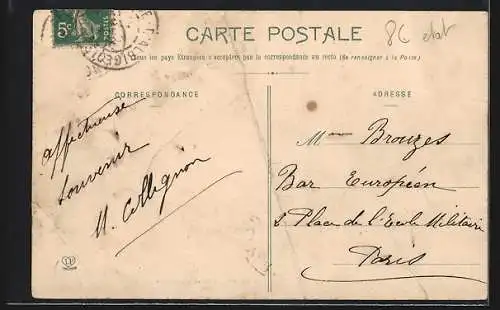 5c
POSTES
ALBIGEOIS
CARTE POSTALE
8€ etat
Tous les pays Etrangers n'acceptent pas la correspondance au recto (Se renseigner à la Poste)
CORRESPONDANCE
ADRESSE
affectueuse
souvenir
M. Collignon
Mme Brouzes
Bar Européen
2 Place de l'Ecole Militaire
Paris